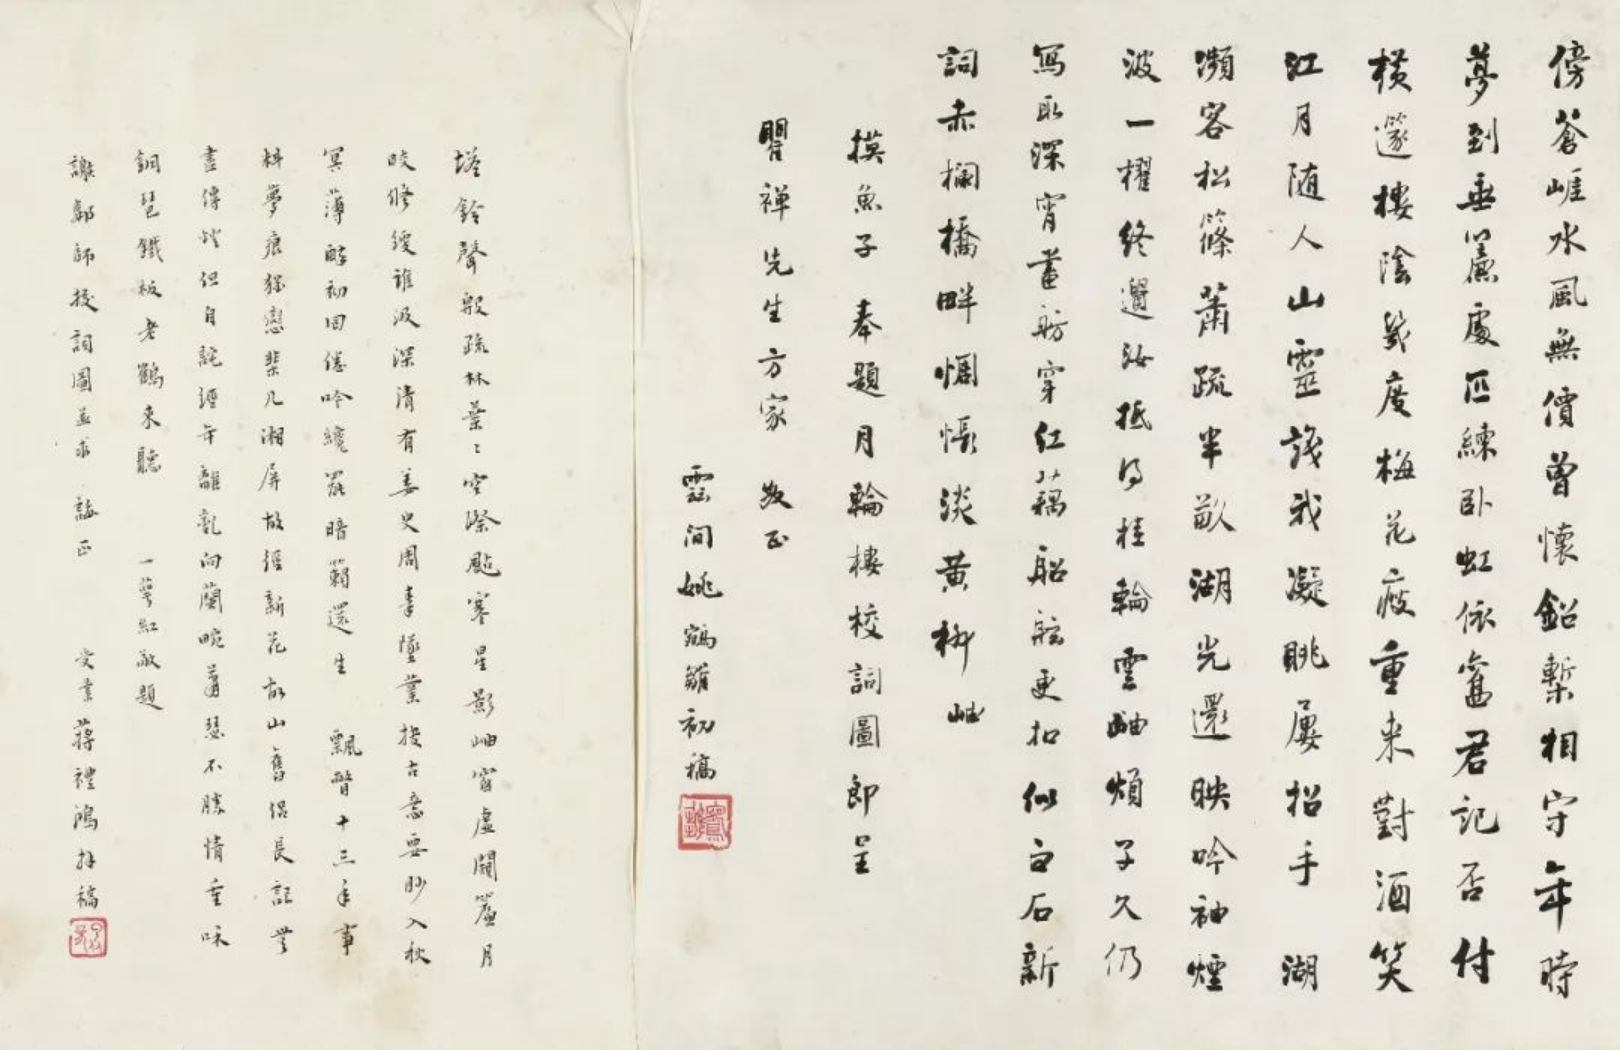 傍蒼崕水風無價曾懷鉛槧相守年時
夢到垂簾處匹練卧虹依舊君記否付
横邃樓陰幾度梅花瘦重来對酒笑
江月随人山靈識我凝眺屢招手　湖
瀕客松篠蕭疏半畝湖光還映吟袖煙
波一櫂終邊汝抵得桂輪雲岫煩子久仍
寫取深宵畫舫穿紅藕船舷更扣似白石新
詞赤欄橋畔惆悵淡黄柳　岫
摸魚子　奉題月輪樓校詞圖即呈
瞿禅先生方家　教正
雲間姚鵷雛初稿
塔鈴聲殿疏林葉葉空際颭寒星影岫窗虛闢簾月
皎修綆誰汲深清有姜史周秦墜業授古意要眇入秋
冥薄醉初回倦吟纔罷暗籟還生　飄瞥十三年事
料夢痕猶戀棐几湘屏故徑新花故山舊侶長記
畫傳燈但自詫經年離亂向蘭畹蕭瑟不勝情重咊
銅琶鐵板老鶴来聽　一萼紅敬題
謝鄰師校詞圖並求　誨正　受業蔣禮鴻拜稿